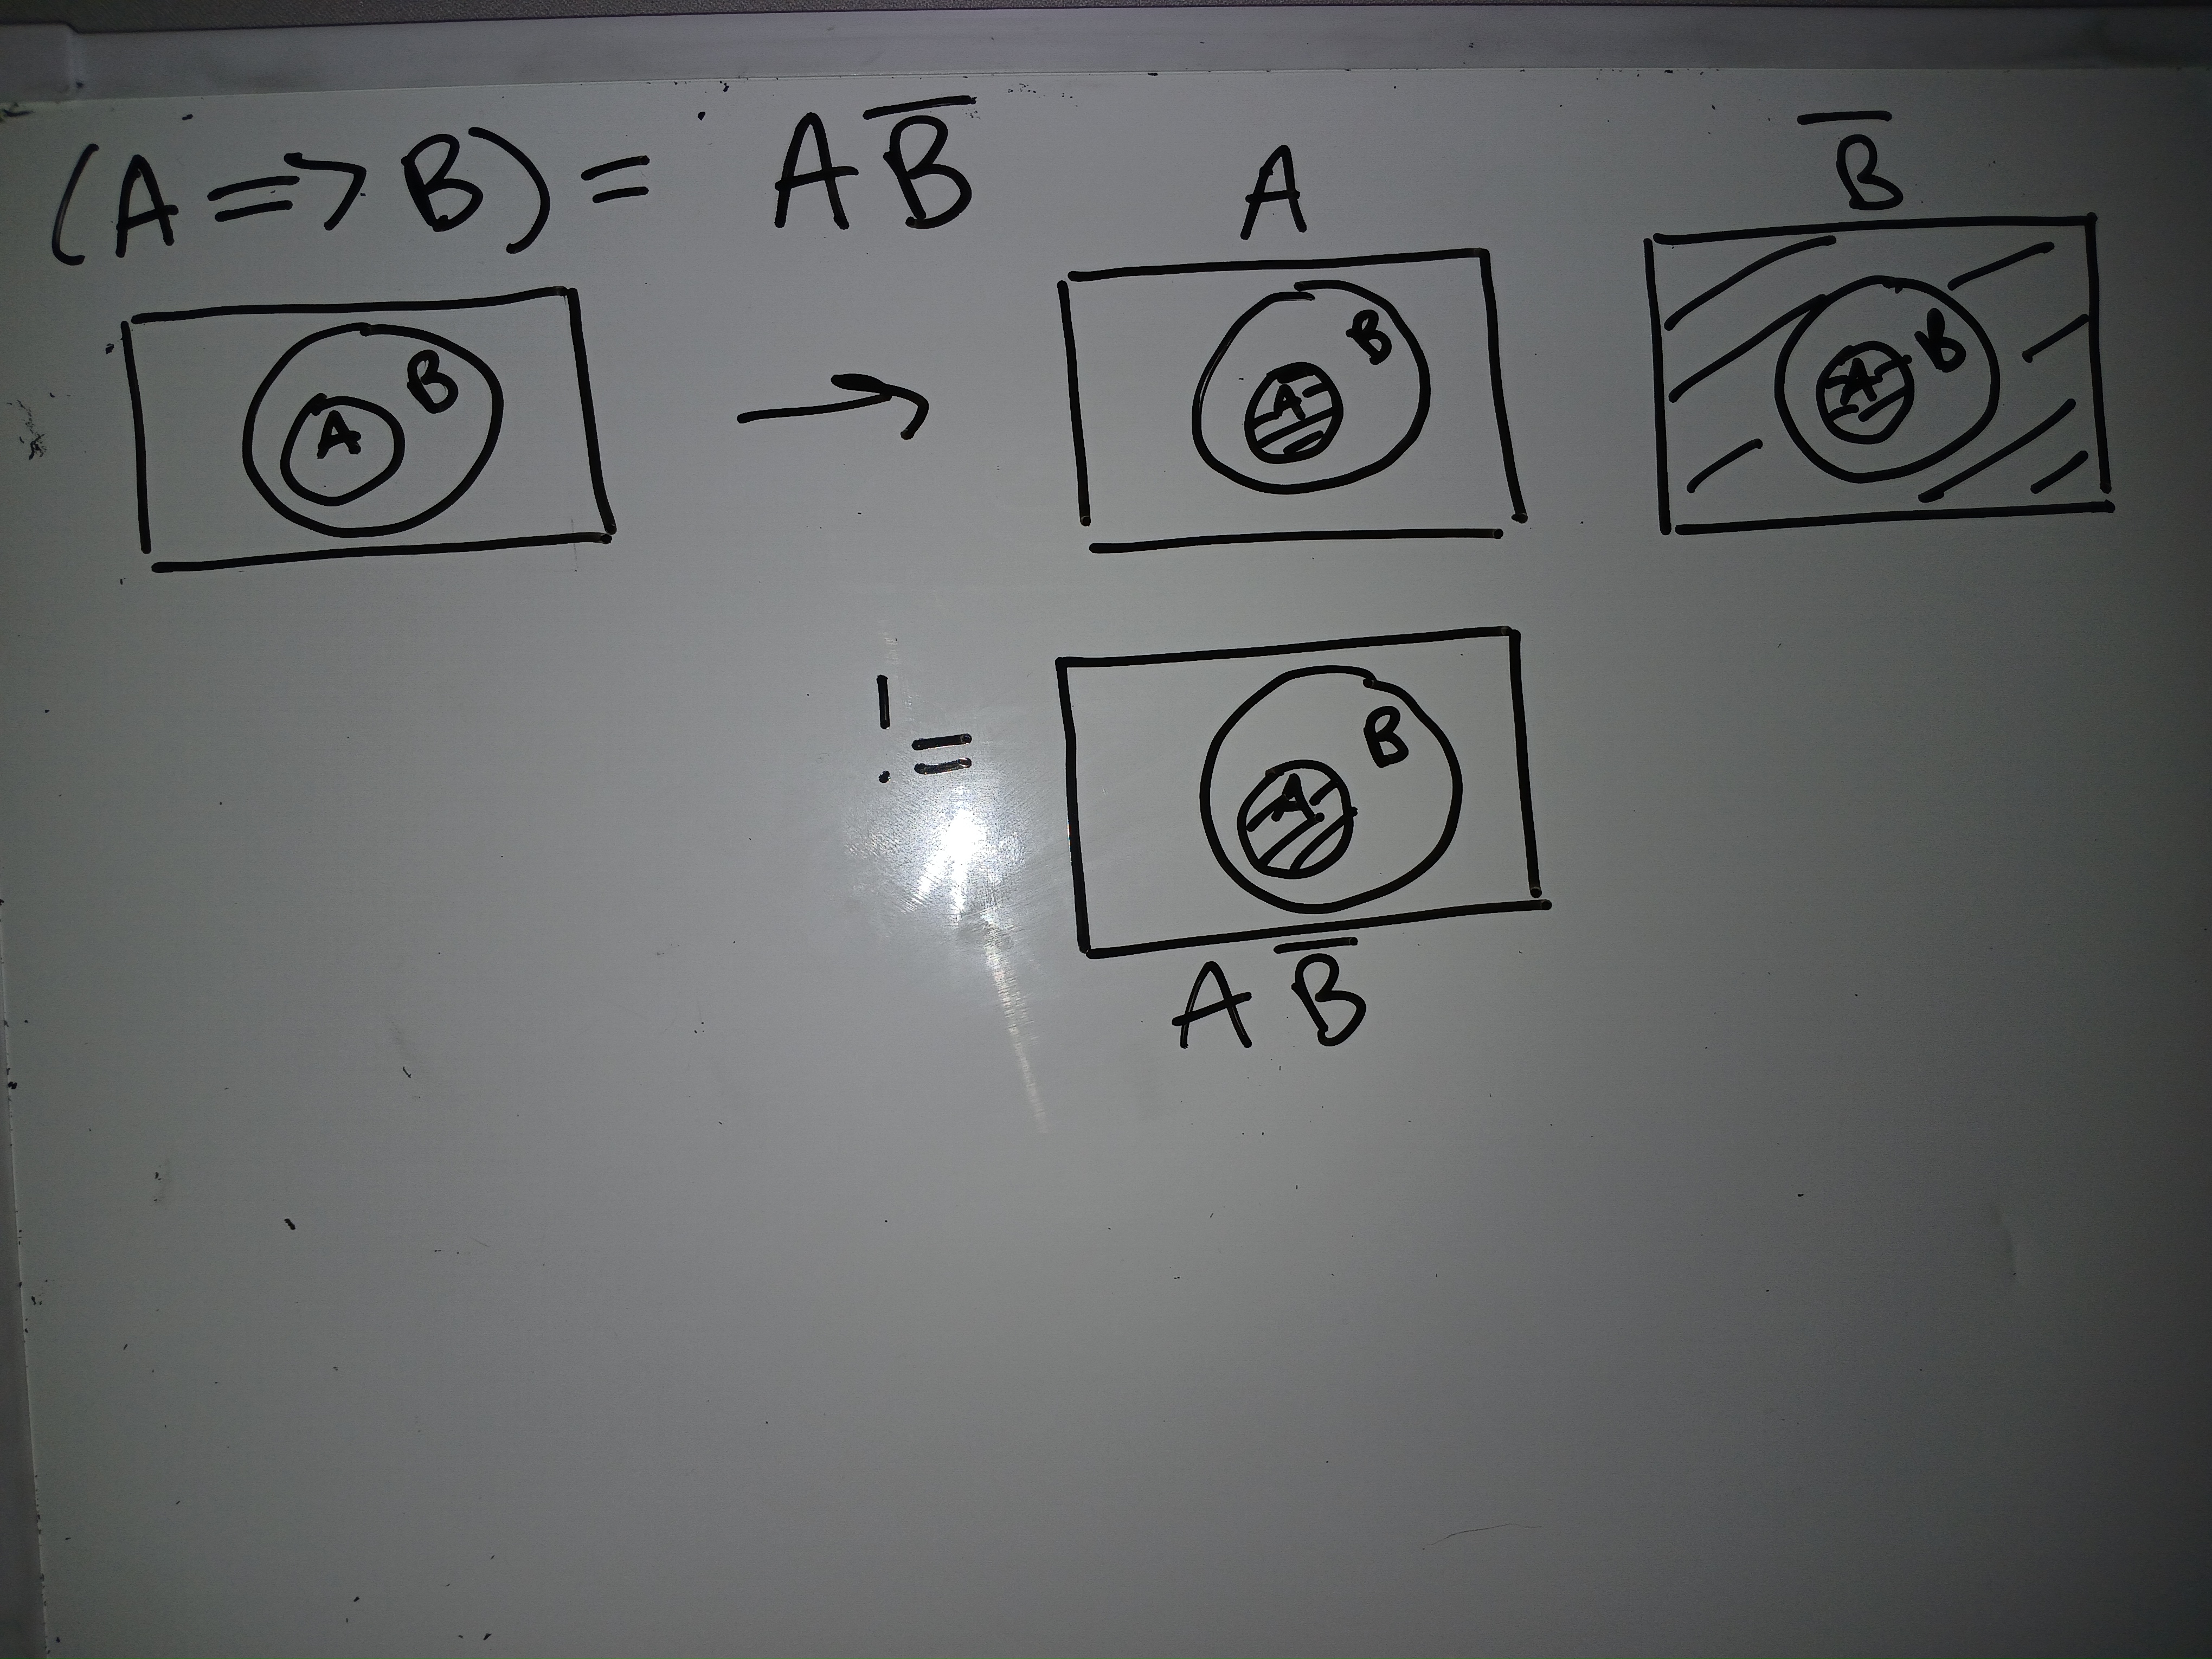 (A => B) = A B̅
A B̅
A B → A B A B
!= A B
A B̅